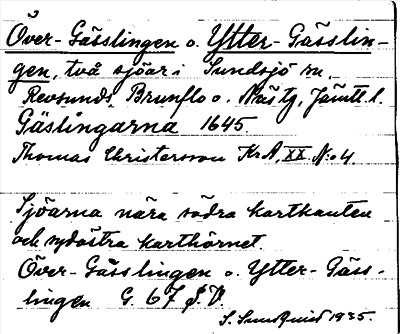 Över-Gässlingen o. Ytter-Gässlin-
gen, två sjöar i Sundsjö sn,
Revsunds, Brunflo o. Näs tg, Jämtl. l.
Gäslingarna 1645.
Thomas Christersson KrA, XX N:o 4.
Sjöarna nära södra kartkanten
och sydöstra karthörnet.
Över-Gässlingen o. Ytter-Gäss-
lingen G. 67 J. V.
S. Sundquist 1935.